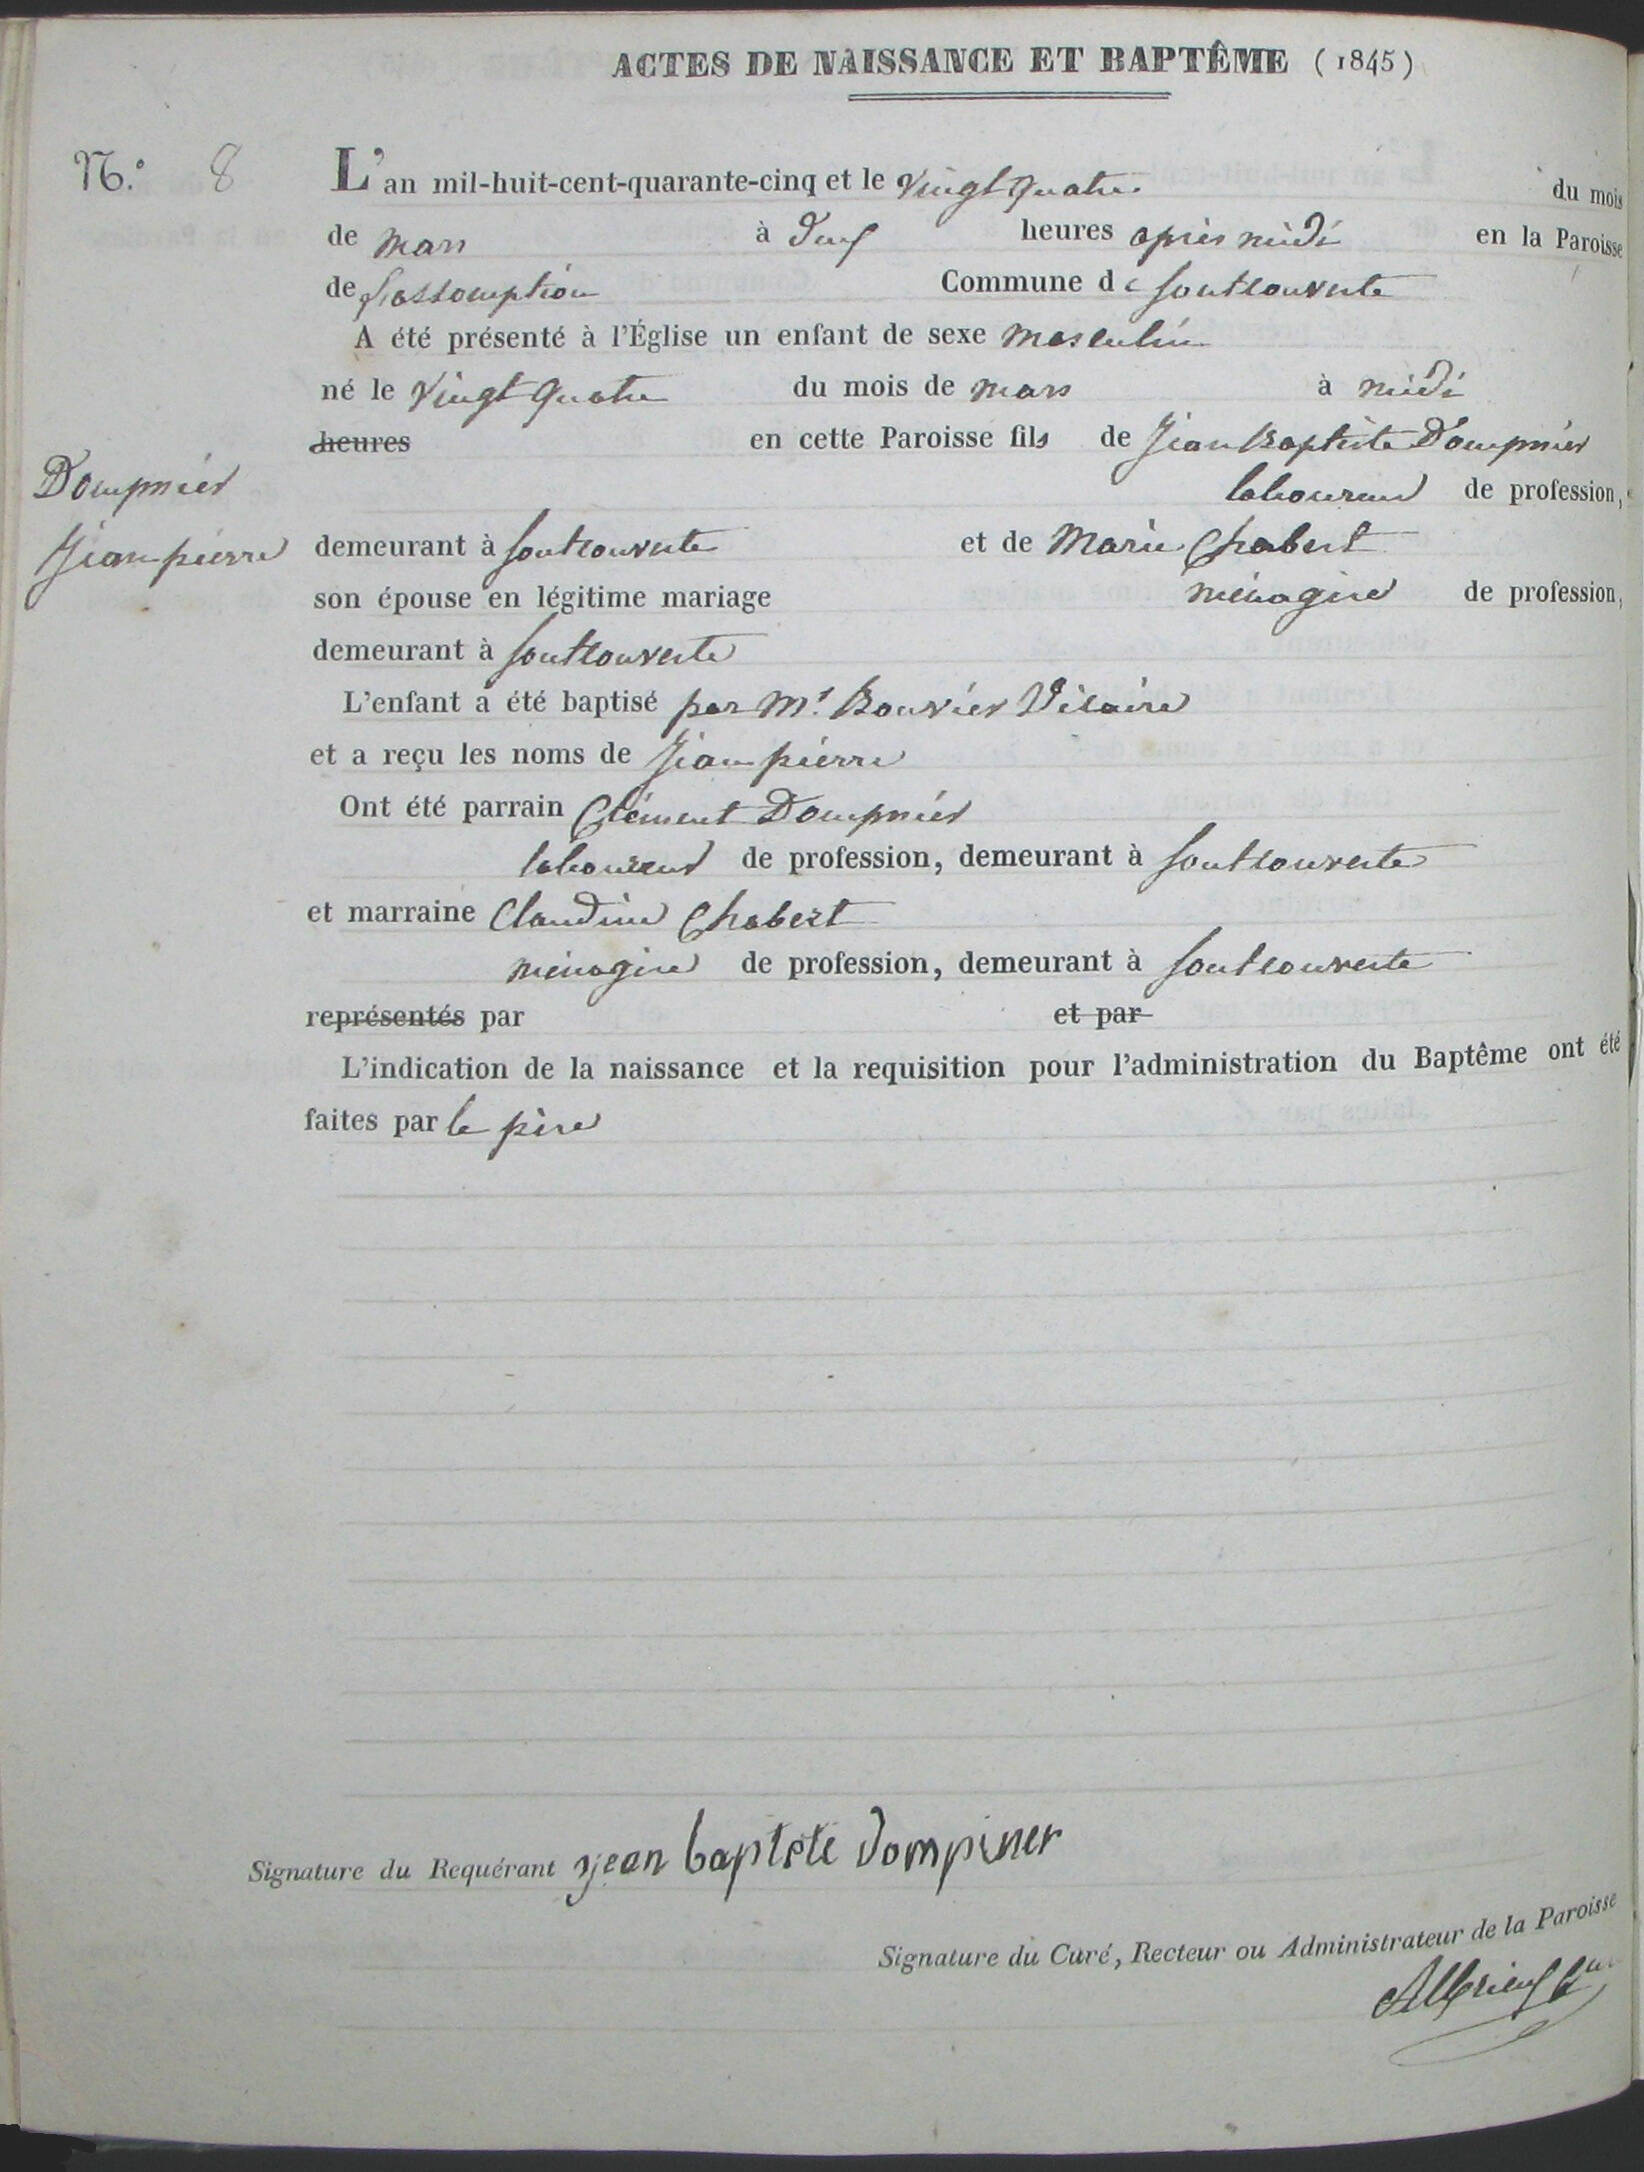 ACTES DE NAISSANCE ET BAPTÊME (1845)
N.° 8
L'an mil-huit-cent-quarante-cinq et le vingt quatre du mois
de mars à deux heures après midi en la Paroisse
de L'assomption Commune de fontcouverte
A été présenté à l'Église un enfant de sexe masculin
né le vingt quatre du mois de mars à midi
heures en cette Paroisse fils de Jean Baptiste Dompnier
laboureur de profession,
Dompnier
Jean pierre
demeurant à fontcouverte et de Marie Chabert
son épouse en légitime mariage ménagère de profession,
demeurant à fontcouverte
L'enfant a été baptisé par Mr. Bouvier Vicaire
et a reçu les noms de Jean pierre
Ont été parrain Clément Dompnier
laboureur de profession, demeurant à fontcouverte
et marraine Claudine Chabert
ménagère de profession, demeurant à fontcouverte
représentés par et par
L'indication de la naissance et la requisition pour l'administration du Baptême ont été
faites par le père
Signature du Requérant jean baptste dompiner
Signature du Curé, Recteur ou Administrateur de la Paroisse